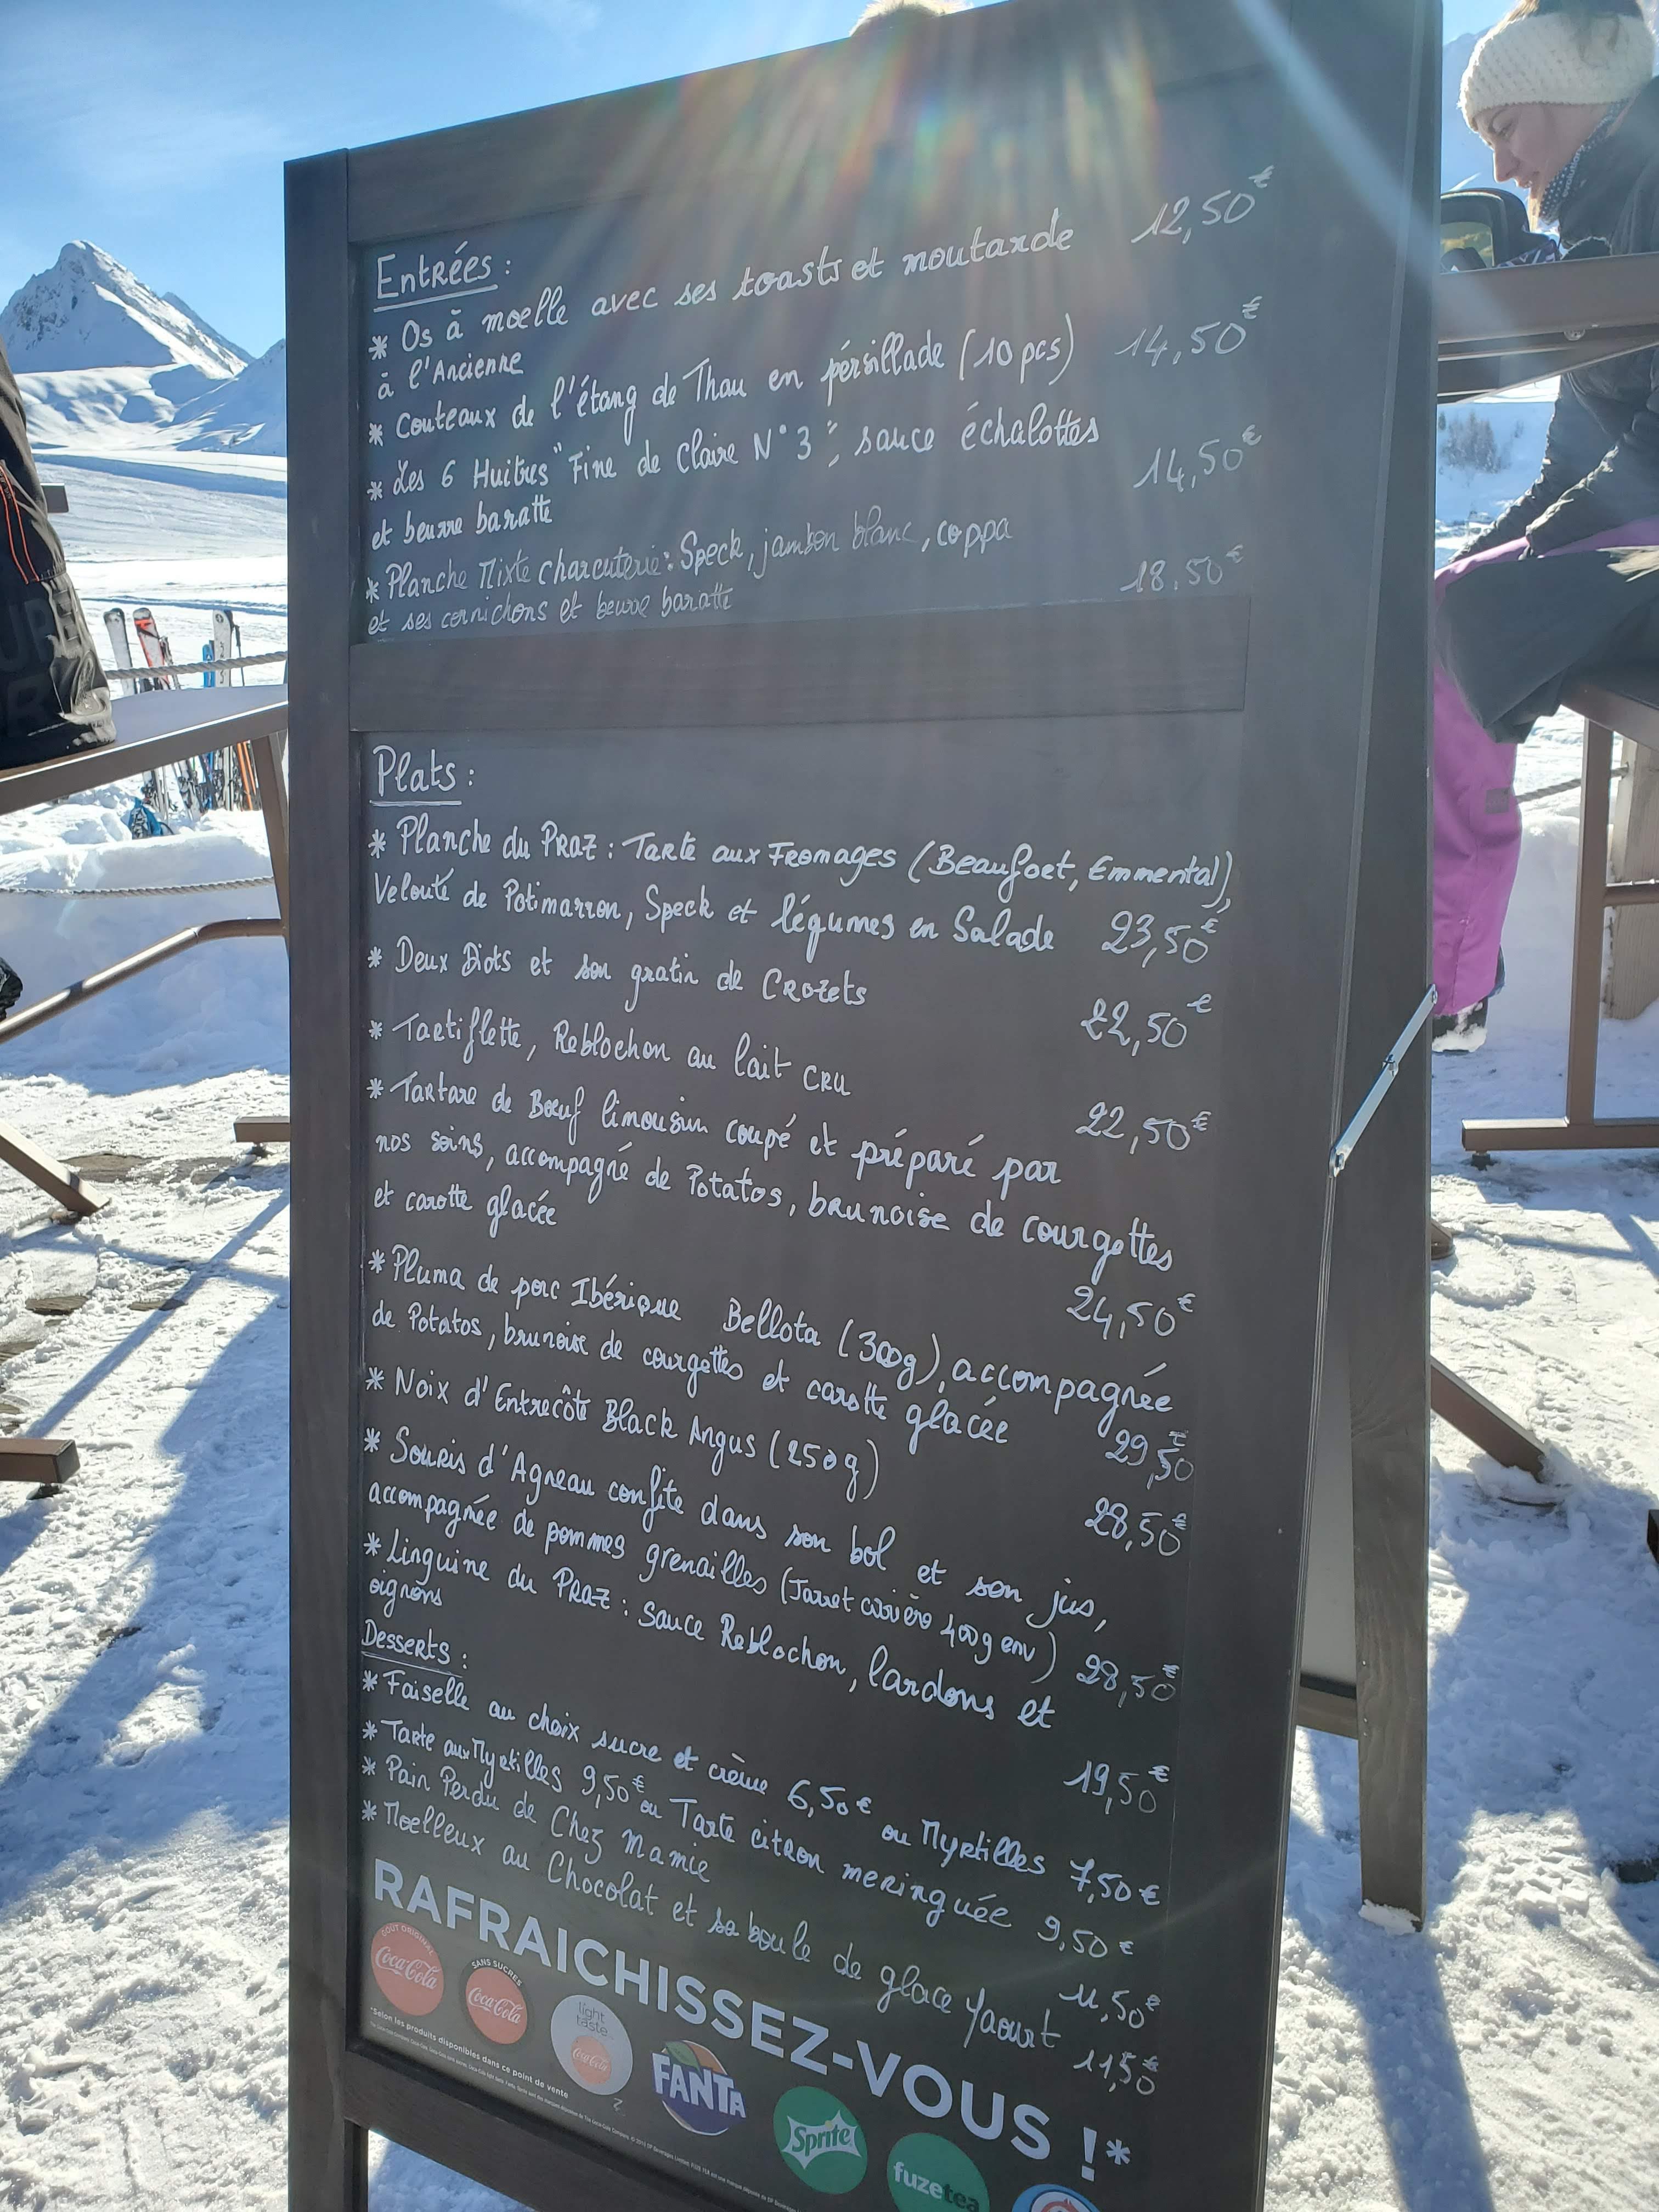 Entrées :
* Os à moelle avec ses toasts et moutarde 12,50€
à l'Ancienne
* Couteaux de l'étang de Thau en pérsillade (10 pcs) 14,50€
* Les 6 Huitres "Fine de Claire N°3", sauce échalottes
et beurre baratte 14,50€
* Planche Mixte charcuterie : Speck, jambon blanc, coppa
et ses cornichons et beurre baratte 18.50€
Plats :
* Planche du PRAZ : Tarte aux Fromages (Beaufort, Emmental),
Velouté de Potimarron, Speck et légumes en Salade 23,50€
* Deux Diots et son gratin de Crozets 22,50€
* Tartiflette, Reblochon au lait CRU 22,50€
* Tartare de Bœuf limousin coupé et préparé par
nos soins, accompagné de Potatos, brunoise de courgettes
et carotte glacée 24,50€
* Pluma de porc Ibérique Bellota (300g), accompagnée
de Potatos, brunoise de courgettes et carotte glacée 29,50€
* Noix d'Entrecôte Black Angus (250g) 28,50€
* Souris d'Agneau confite dans son bol et son jus,
accompagnée de pommes grenailles (Jarret arrière 400g env) 28,50€
* Linguine du PRAZ : Sauce Reblochon, lardons et
oignons 19,50€
Desserts :
* Faiselle au choix sucre et crème 6,50€ ou Myrtilles 7,50€
* Tarte aux Myrtilles 9,50€ ou Tarte citron meringuée 9,50€
* Pain Perdu de Chez Mamie 11,50€
* Moelleux au Chocolat et sa boule de glace Yaourt 11,50€
RAFRAICHISSEZ-VOUS !*
GOÛT ORIGINAL
Coca-Cola
SANS SUCRES
Coca-Cola
light
taste
Coca-Cola
FANTA
Sprite
fuzetea
*Selon les produits disponibles dans ce point de vente